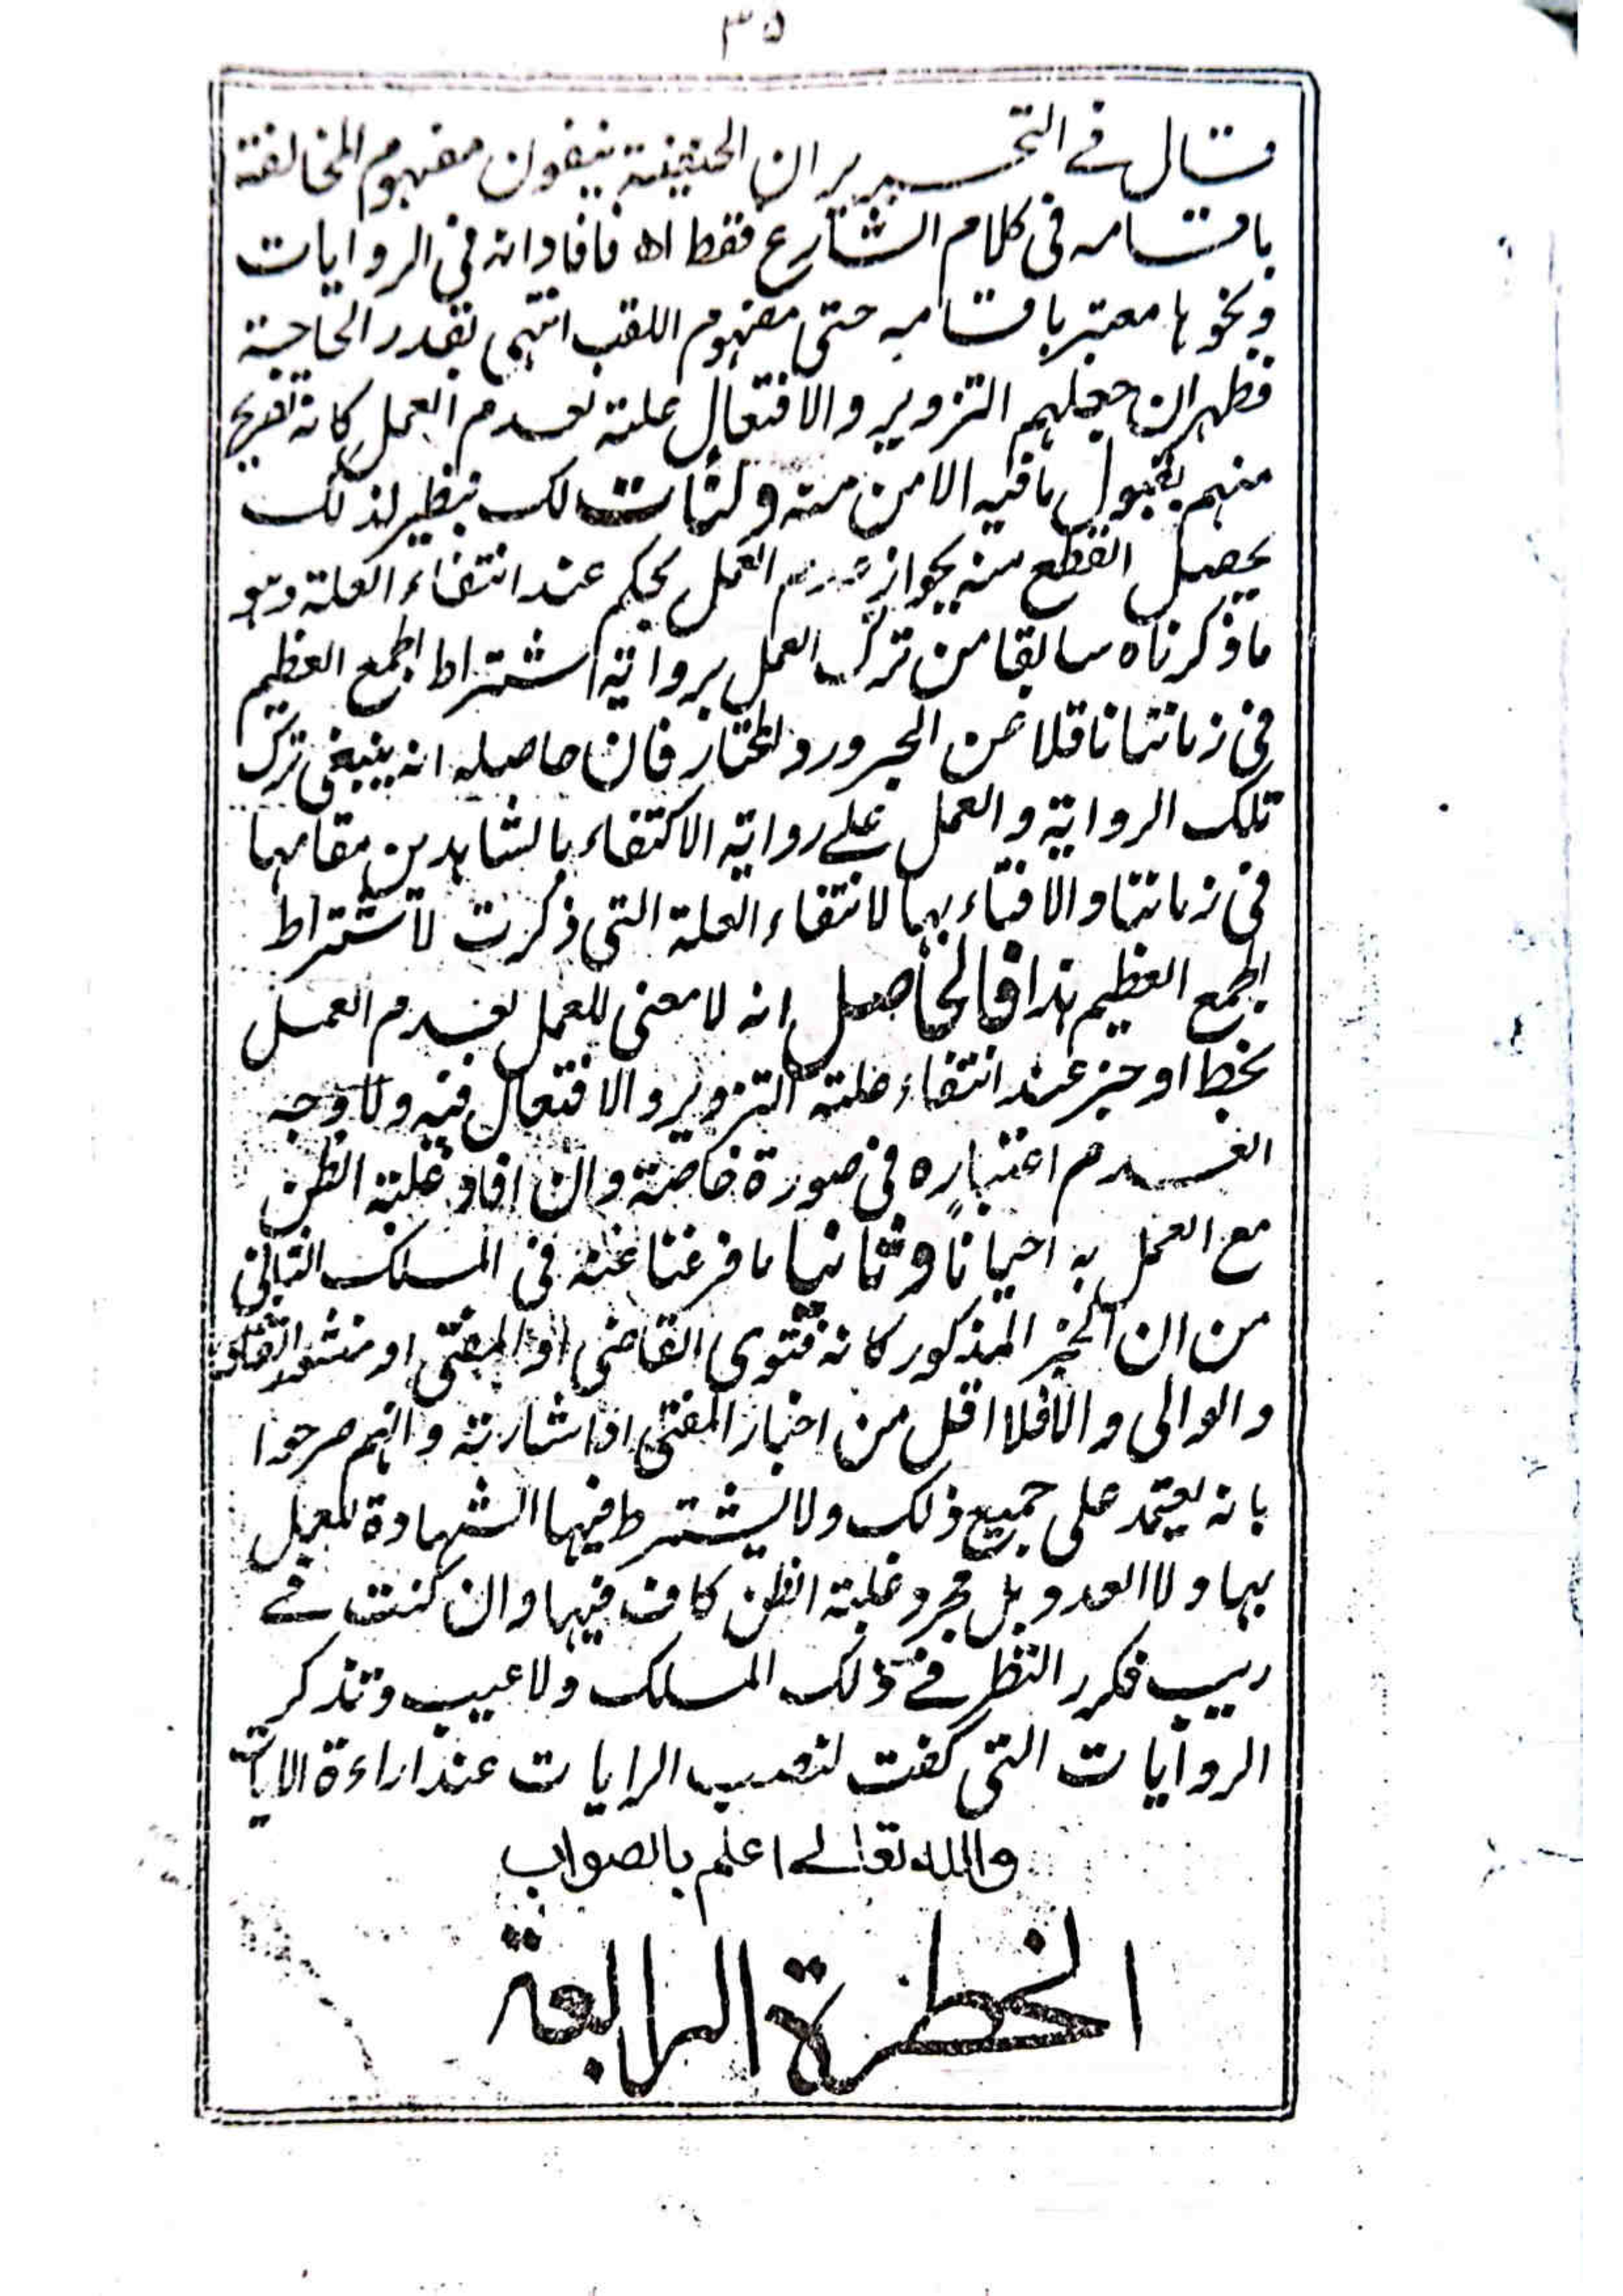 ٣٥
قال فے التحریر ان الحنفیۃ ینفون مفہوم المخالفۃ
باقسامہ فی کلام الشارع فقط اھ فافاد انہ فی الروایات
ونحوہا معتبر باقسامہ حتی مفہوم اللقب انتہی بقدر الحاجۃ
فظہر ان جعلہم التزویر والافتعال علۃ لعدم العمل کانہ تفریح
منہم بقبول ما فیہ الامن منہ ولئن لک نظیر لذلک
یحصل القطع منہ بجواز عدم العمل بحکم عند انتفاء العلۃ وہو
ما ذکرناہ سابقا من ترک العمل بروایۃ اشتراط الجمع العظیم
فی زماننا ناقلا عن البحر ورد المختار فان حاصلہ انہ ینبغی ترک
تلک الروایۃ والعمل علے روایۃ الاکتفاء بالشاہدین مقامہا
فی زماننا والافتاء بہا لانتفاء العلۃ التی ذکرت لاشتراط
الجمع العظیم ہذا فالحاصل انہ لا معنی للعمل بعدم العمل
بخط او خبر عند انتفاء علۃ التزویر والافتعال فیہ ولا وجہ
لعدم اعتبارہ فی صورۃ خاصۃ وان افاد غلبۃ الظن
مع العمل بہ احیانا وثانیا ما فرغنا عنہ فی المسلک الثانی
من ان الخبر المذکور کانہ فتوی القاضی او المفتی او منشور القضاۃ
والوالی والا فلا اقل من اخبار المفتی او اشارتہ وانہم صرحوا
بانہ یعتمد علی جمیع ذلک ولا یشترط فیہا الشہادۃ للعمل
بہا ولا العدد بل مجرد غلبۃ الظن کاف فیہا وان کنت فے
ریب فکرر النظر فے ذلک المسلک ولا عیب وتذکر
الروایات التی کفت لنصب الرایات عند اراءۃ الایات
واللہ تعالے اعلم بالصواب
الخطرۃ الرابعۃ